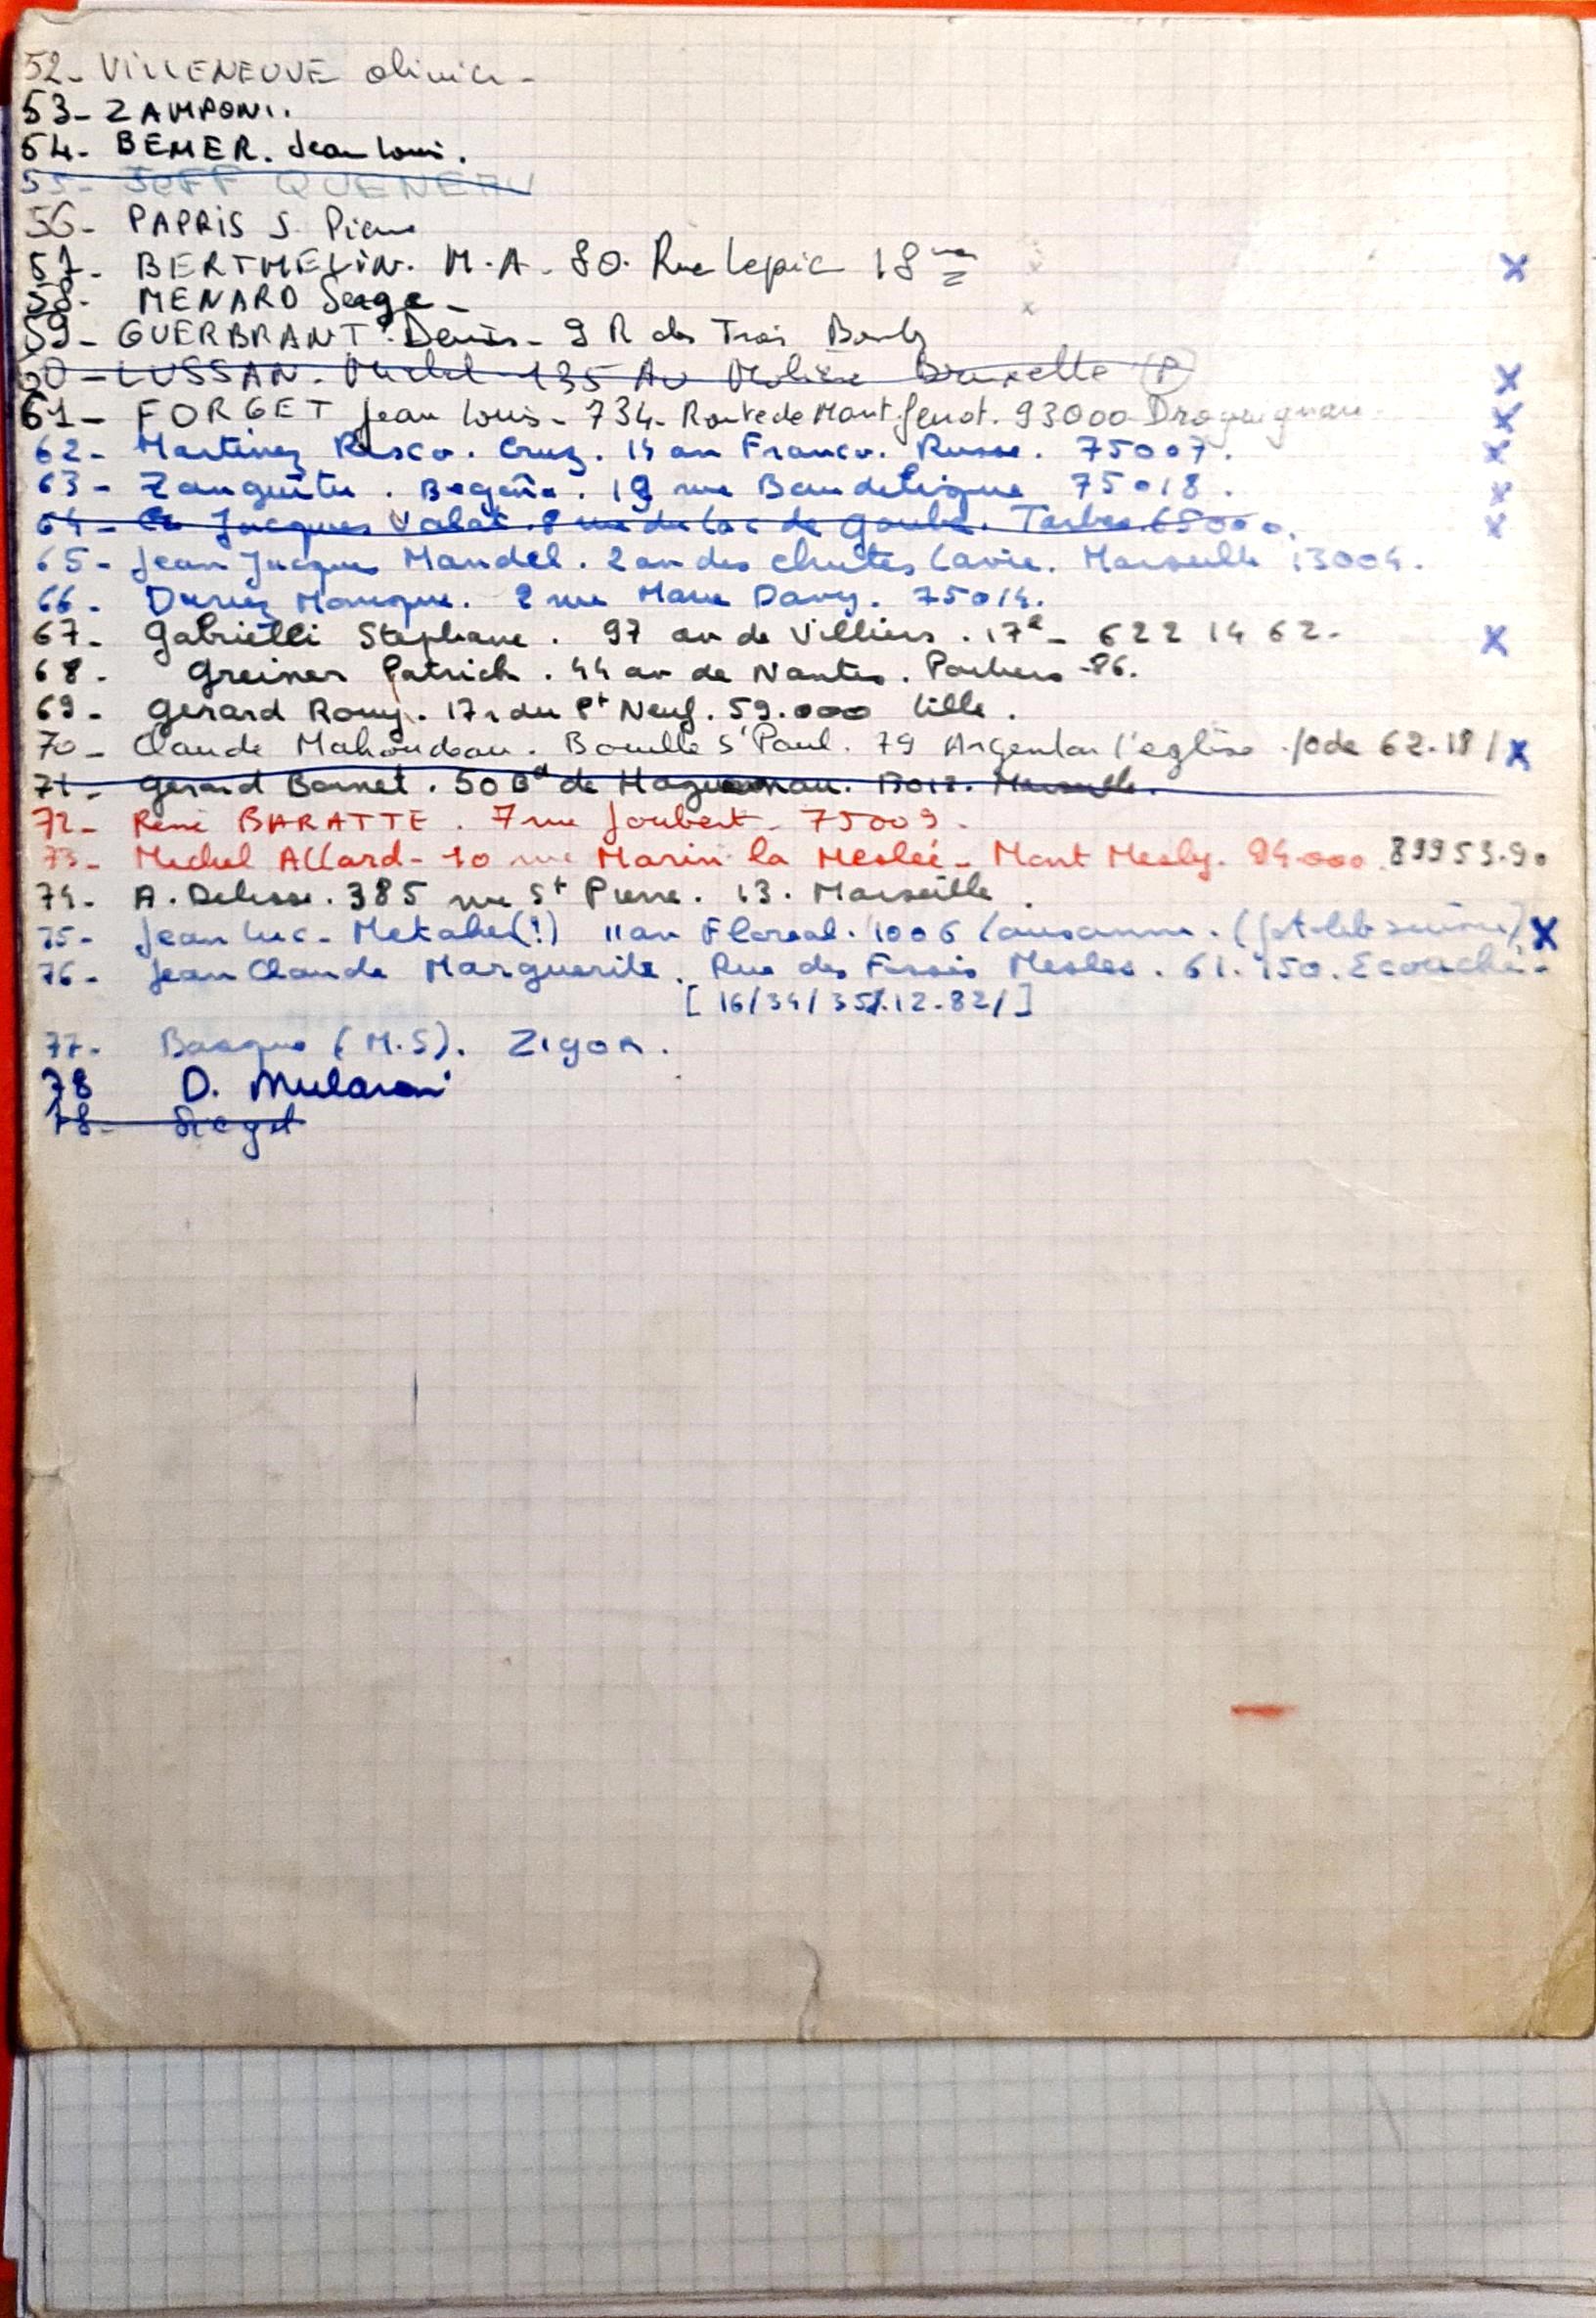 52- VILLENEUVE olivier -
53- ZAMPONI.
54- BEMER. Jean Louis.
55- JEFF QUENEAU
56- PAPRIS J. Pierre
57- BERTHELIN. M.A- 80. Rue Lepic 18 X
58- MENARD Serge -
59- GUERBRANT. Denis- 9 R des Trois
60- LUSSAN. Michel 135 Av Molière Bruxelle (P) X
61- FORGET Jean Louis- 734- Route de Mont. 93000 Draguignan X
62- Martinez Risco. Cruz. 14 av Franco. Russe. 75007. X
63- Zanguitu. Begoña. 19 rue Baudelique 75018. X
64- Jacques Valat. 8 rue du Lac de Gaube. Tarbes. 65000. X
65- Jean Jacques Mandel. 2 av des chutes Lavie. Marseille 13004.
66- Duriez Monique. 2 rue Marie Davy. 75014.
67- Gabrielli Stephane. 97 av de Villiers. 17e- 622 14 62- X
68- Greiner Patrick. 44 av de Nantes. Poitiers-86.
69- Gerard Rouy. 17 r du Pt Neuf. 59.000 Lille.
70- Claude Mahoudeau. Bouille St Paul. 79 Argenton l'eglise 62.18/ X
71- Gerard Bonnet. 50 Bd de. Marseille.
72- René BARATTE. 7 rue Joubert- 75009.
73- Michel Allard- 10 rue Marin la Meslée- Mont Mesly. 94000 89953.90
74- A. Delisse. 385 rue St Pierre. 13. Marseille.
75- Jean Luc- (?) 11 av Floreal. 1006 Lausanne. X
76- Jean Claude Marguerite. Rue des Fossés Mesles. 61.150. Ecouché-
[16/34/35/.12.82/]
77- Basque (M.S). Zigor.
78 D. Mularoni
78- Siegel